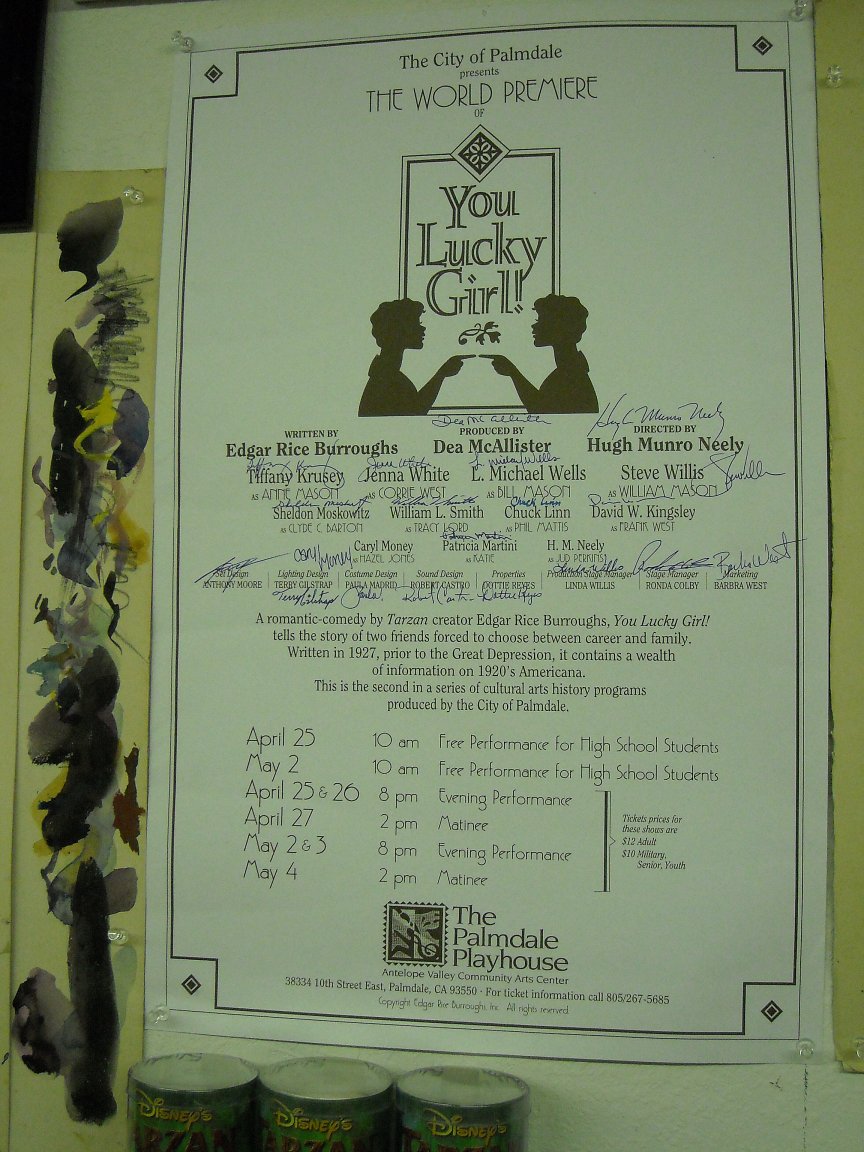 The City of Palmdale
presents
THE WORLD PREMIERE
OF
You
Lucky
Girl!
Dea McAllister
Hugh Munro Neely
WRITTEN BY PRODUCED BY DIRECTED BY
Edgar Rice Burroughs Dea McAllister Hugh Munro Neely
Tiffany Krusey Jenna White L. Michael Wells Steve Willis
AS ANNE MASON AS CORRIE WEST AS BILL MASON AS WILLIAM MASON
Sheldon Moskowitz William L. Smith Chuck Linn David W. Kingsley
AS CLYDE C. BARTON AS TRACY LORD AS PHIL MATTIS AS FRANK WEST
Caryl Money Patricia Martini H. M. Neely
AS HAZEL JONES AS KATIE AS JUD PERKINS
Set Design Lighting Design Costume Design Sound Design Properties Production Stage Manager Stage Manager Marketing
ANTHONY MOORE TERRY GILSTRAP PAULA MADRID ROBERT CASTRO DOTTIE REYES LINDA WILLIS RONDA COLBY BARBRA WEST
A romantic-comedy by Tarzan creator Edgar Rice Burroughs, You Lucky Girl!
tells the story of two friends forced to choose between career and family.
Written in 1927, prior to the Great Depression, it contains a wealth
of information on 1920's Americana.
This is the second in a series of cultural arts history programs
produced by the City of Palmdale.
April 25 10 am Free Performance for High School Students
May 2 10 am Free Performance for High School Students
April 25 & 26 8 pm Evening Performance
April 27 2 pm Matinee
May 2 & 3 8 pm Evening Performance
May 4 2 pm Matinee
Tickets prices for
these shows are
$12 Adult
$10 Military,
Senior, Youth
The
Palmdale
Playhouse
Antelope Valley Community Arts Center
38334 10th Street East, Palmdale, CA 93550 · For ticket information call 805/267-5685
Copyright Edgar Rice Burroughs, Inc. All rights reserved.
DISNEY'S DISNEY'S DISNEY'S
TARZAN TARZAN TARZAN